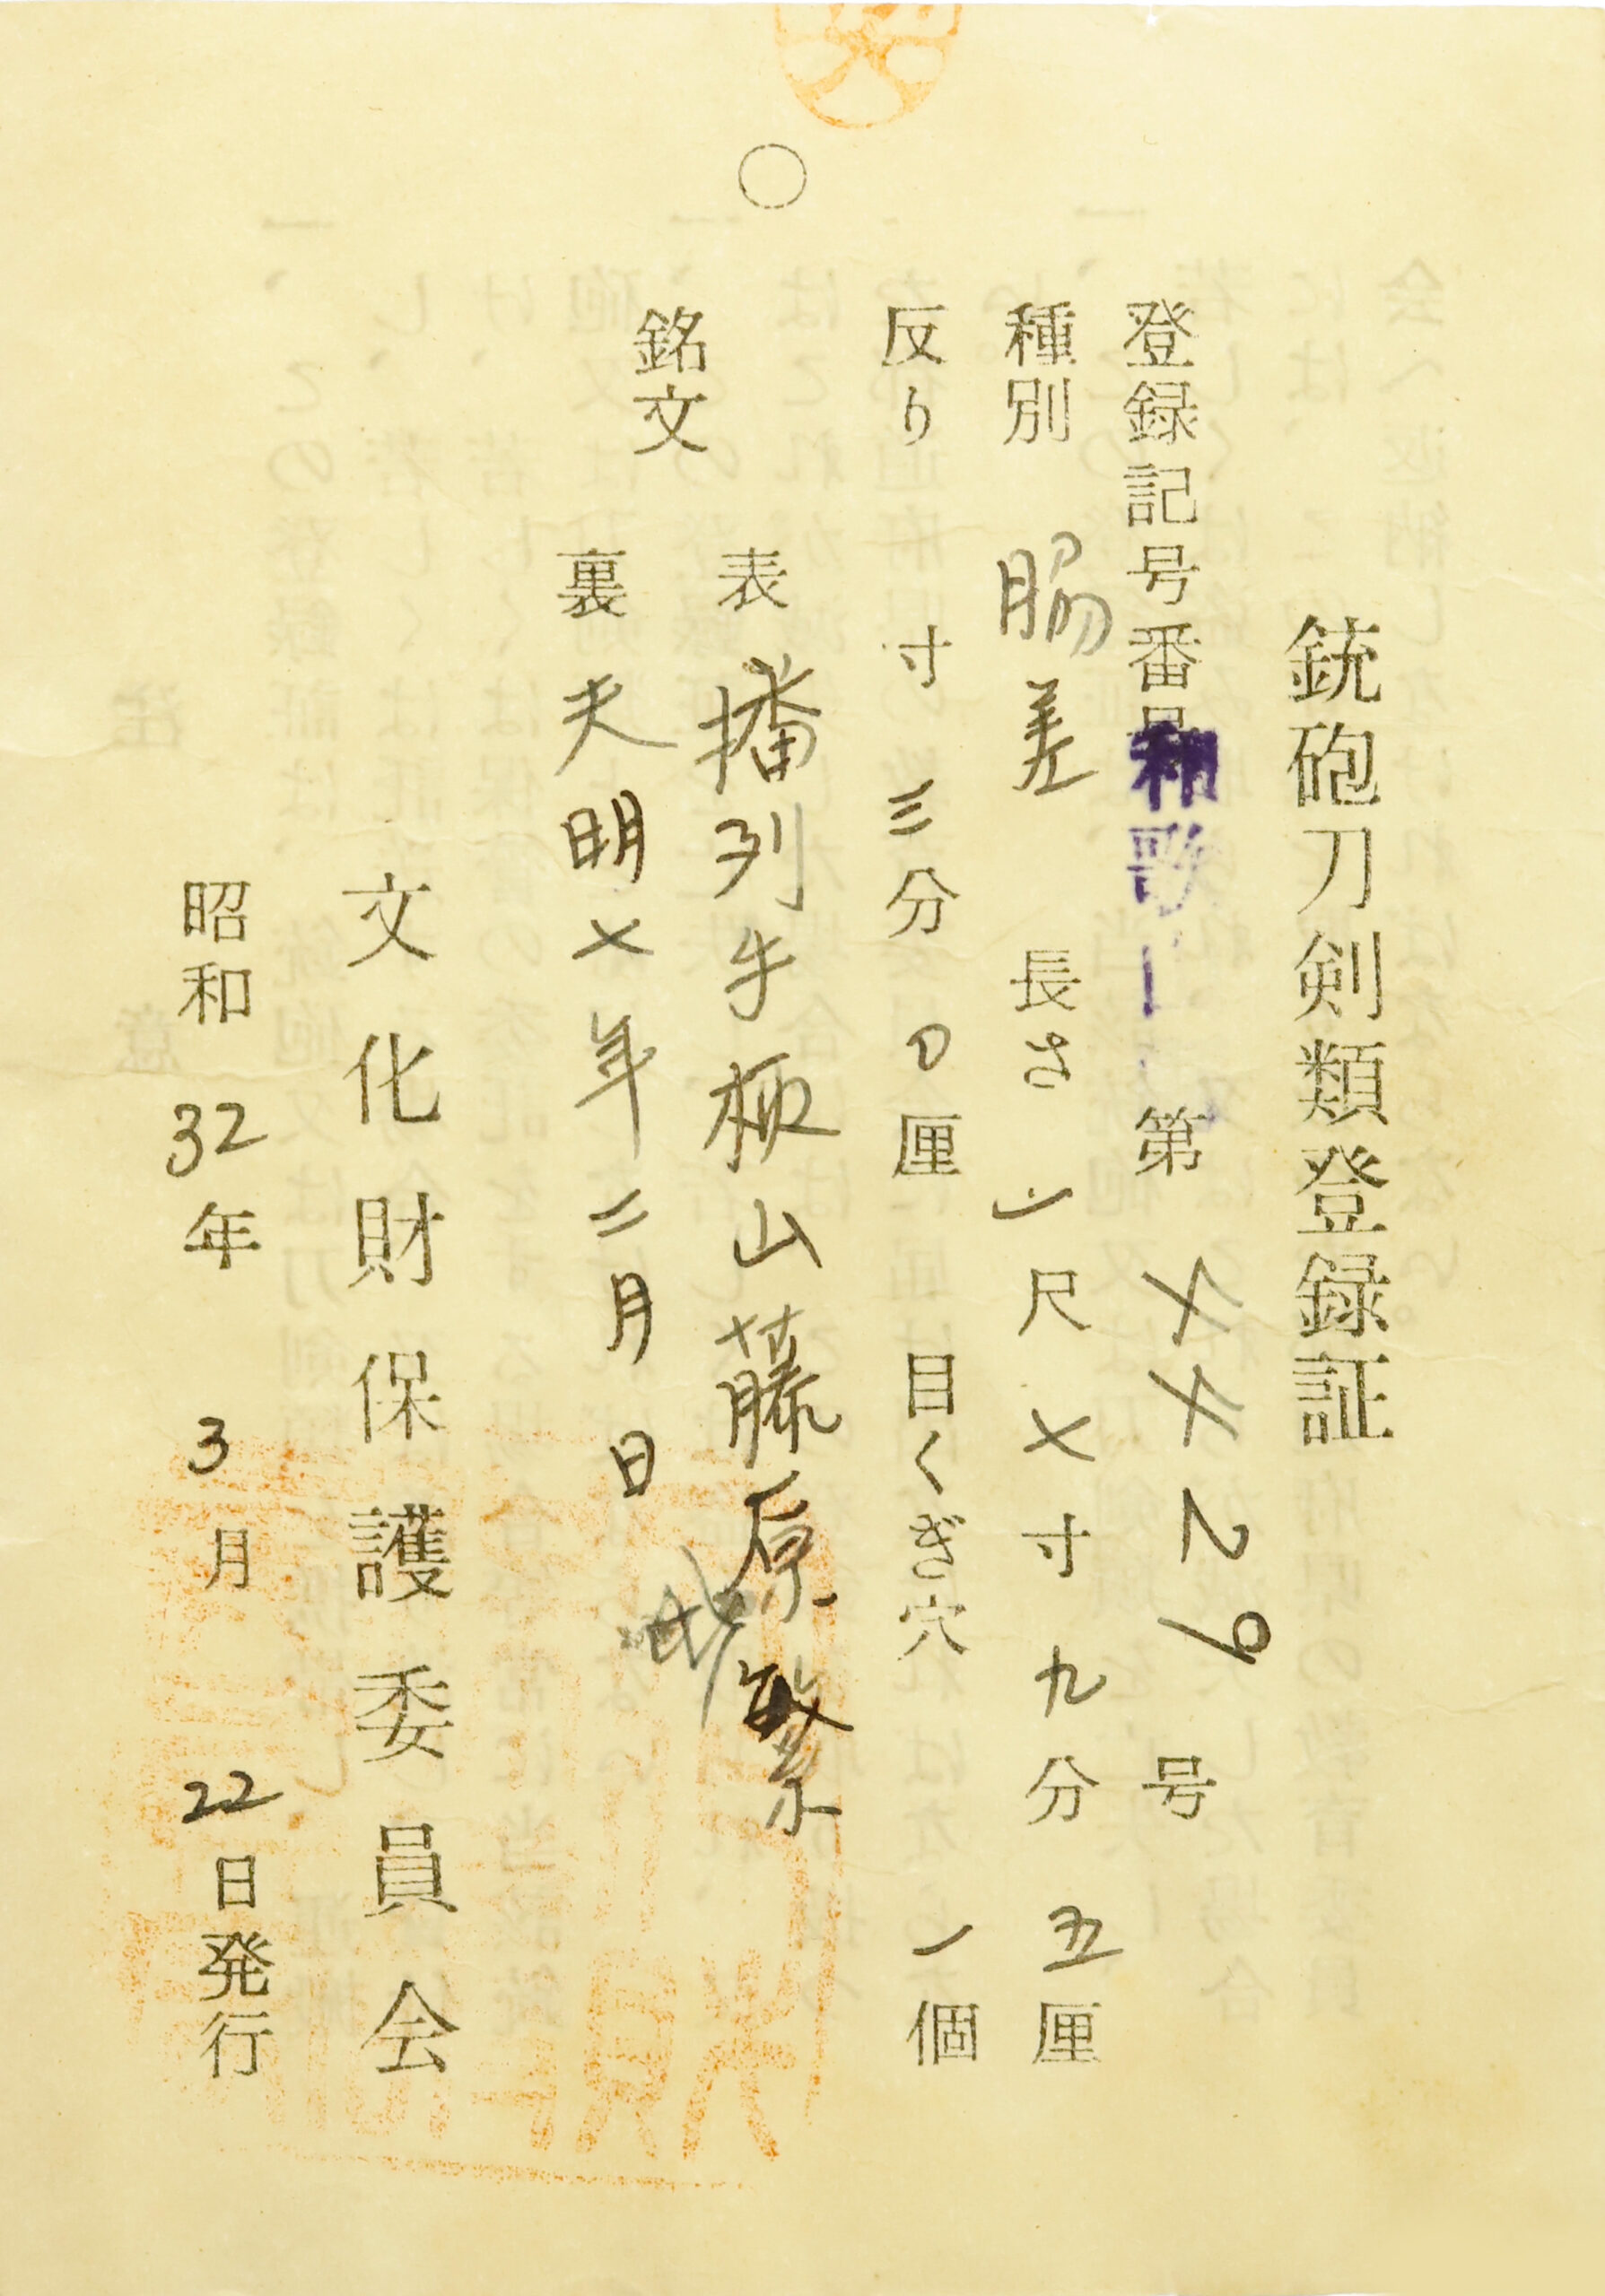 銃砲刀剣類登録証
登録記号番号 和歌 第 4429 号
種別 脇差 長さ 一尺七寸九分五厘
反り 寸三分〇厘 目くぎ穴 一個
銘文
表 播州手柄山藤原繁
裏 天明七年二月日
文化財保護委員会
昭和32年3月22日発行